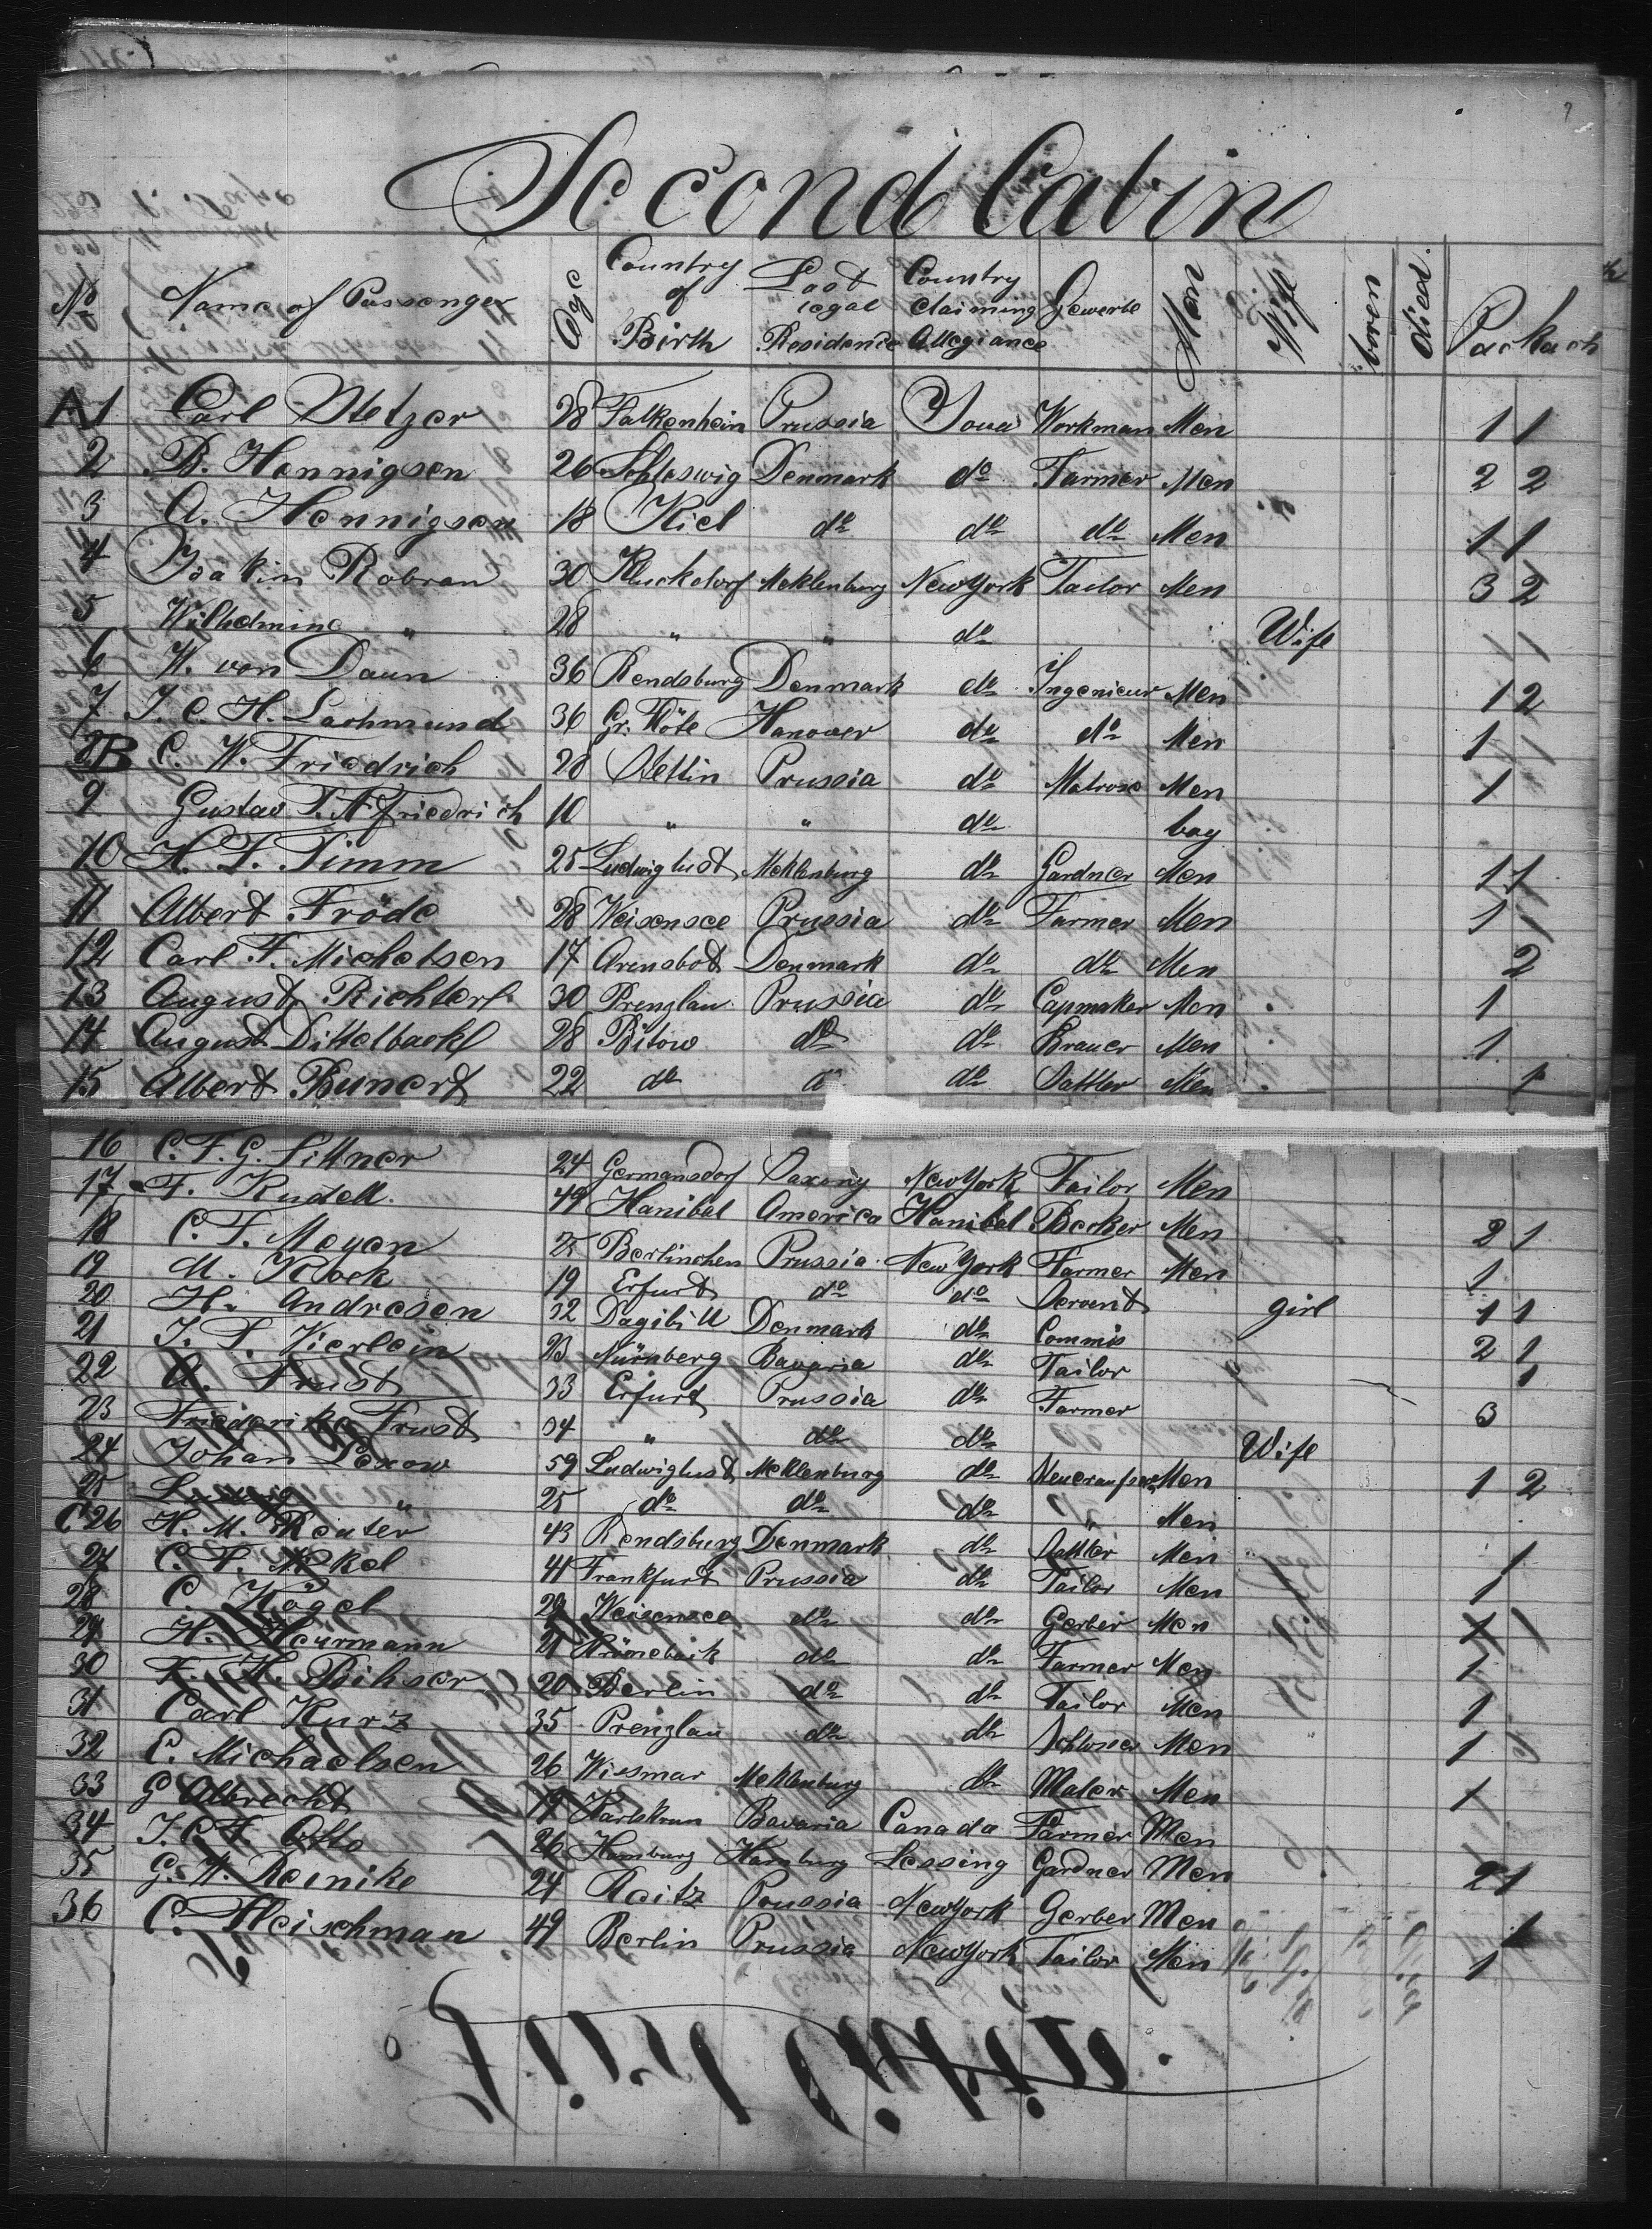 Second Cabin
No Name of Passenger Age Country of Birth Last legal Residence Country claiming Allegiance Gewerbe Men Wife boren died. Packach
A1 Carl Metzer 28 Falkenhein Prussia Iowa Workman Men 1 1
2 B. Hennigsen 26 Schleswig Denmark do Farmer Men 2 2
3 A. Hennigsen 18 Kiel do do do Men 1 1
4 Joakin Robran 30 Kluckdorf Meklenburg New York Tailor Men 3 2
5 Wilhelmine " 28 " " do Wife
6 W. von Daun 36 Rendsburg Denmark do Ingenieur Men 1 2
7 J. C. H. Lachmund 36 Gr. Flöte Hanover do do Men 1
8B C. W. Friedrich 28 Stettin Prussia do Matrose Men 1
9 Gustav F. A. Friedrich 10 " " do boy
10 H. F. Timm 25 Ludwiglust Meklenburg do Gardner Men 1 1
11 Albert Fröde 28 Weisensee Prussia do Farmer Men 1
12 Carl F. Michelsen 17 Arensbot Denmark do do Men 2
13 August Richter 30 Prenzlau Prussia do Capmaker Men 1
14 August Dittelback 28 Bitow do do Brauer Men 1
15 Albert Bunert 22 do d do Sattler Men 1
16 C. F. G. Littner 24 Germansdorf Saxony New York Tailor Men
17 F. Rudell 49 Hanibal America Hanibal Becker Men 2 1
18 C. F. Meyen 25 Berlinchen Prussia New York Farmer Men 1
19 M. Klock 19 Erfurt do do Servent girl 1 1
20 H. Andresen 32 Dagibüll Denmark do Commis 2 1
21 J. P. Vierlein 23 Nürnberg Bavaria do Tailor 1
22 A. Frust 33 Erfurt Prussia do Farmer 3
23 Friederike Frust 34 " do do Wife
24 Johan Lexow 59 Ludwiglust Meklenburg do Men 1 2
25 Ludwig " 25 do do do " Men
C26 H. M. Reuter 43 Rendsburg Denmark do Sattler Men 1
27 C. F. Nikel 41 Frankfurt Prussia do Tailor Men 1
28 C. Kögel 29 Weisensee do do Gerber Men 1
29 H. Heurmann 21 do do Farmer Men 1
30 F. H. Bihser 20 Berlin do do Tailor Men 1
31 Carl Kurz 35 Prenzlau do do Schlosser Men 1
32 C. Michaelsen 26 Wismar Meklenburg do Maler Men 1
33 G Albrecht 19 Karlskrun Bavaria Canada Farmer Men
34 J. C. F. Otto 26 Hamburg Hamburg Lessing Gardner Men 2 1
35 G. W. Reinike 24 Raitz Prussia New York Gerber Men 1
36 C. Fleischman 49 Berlin Prussia New York Tailor Men 1